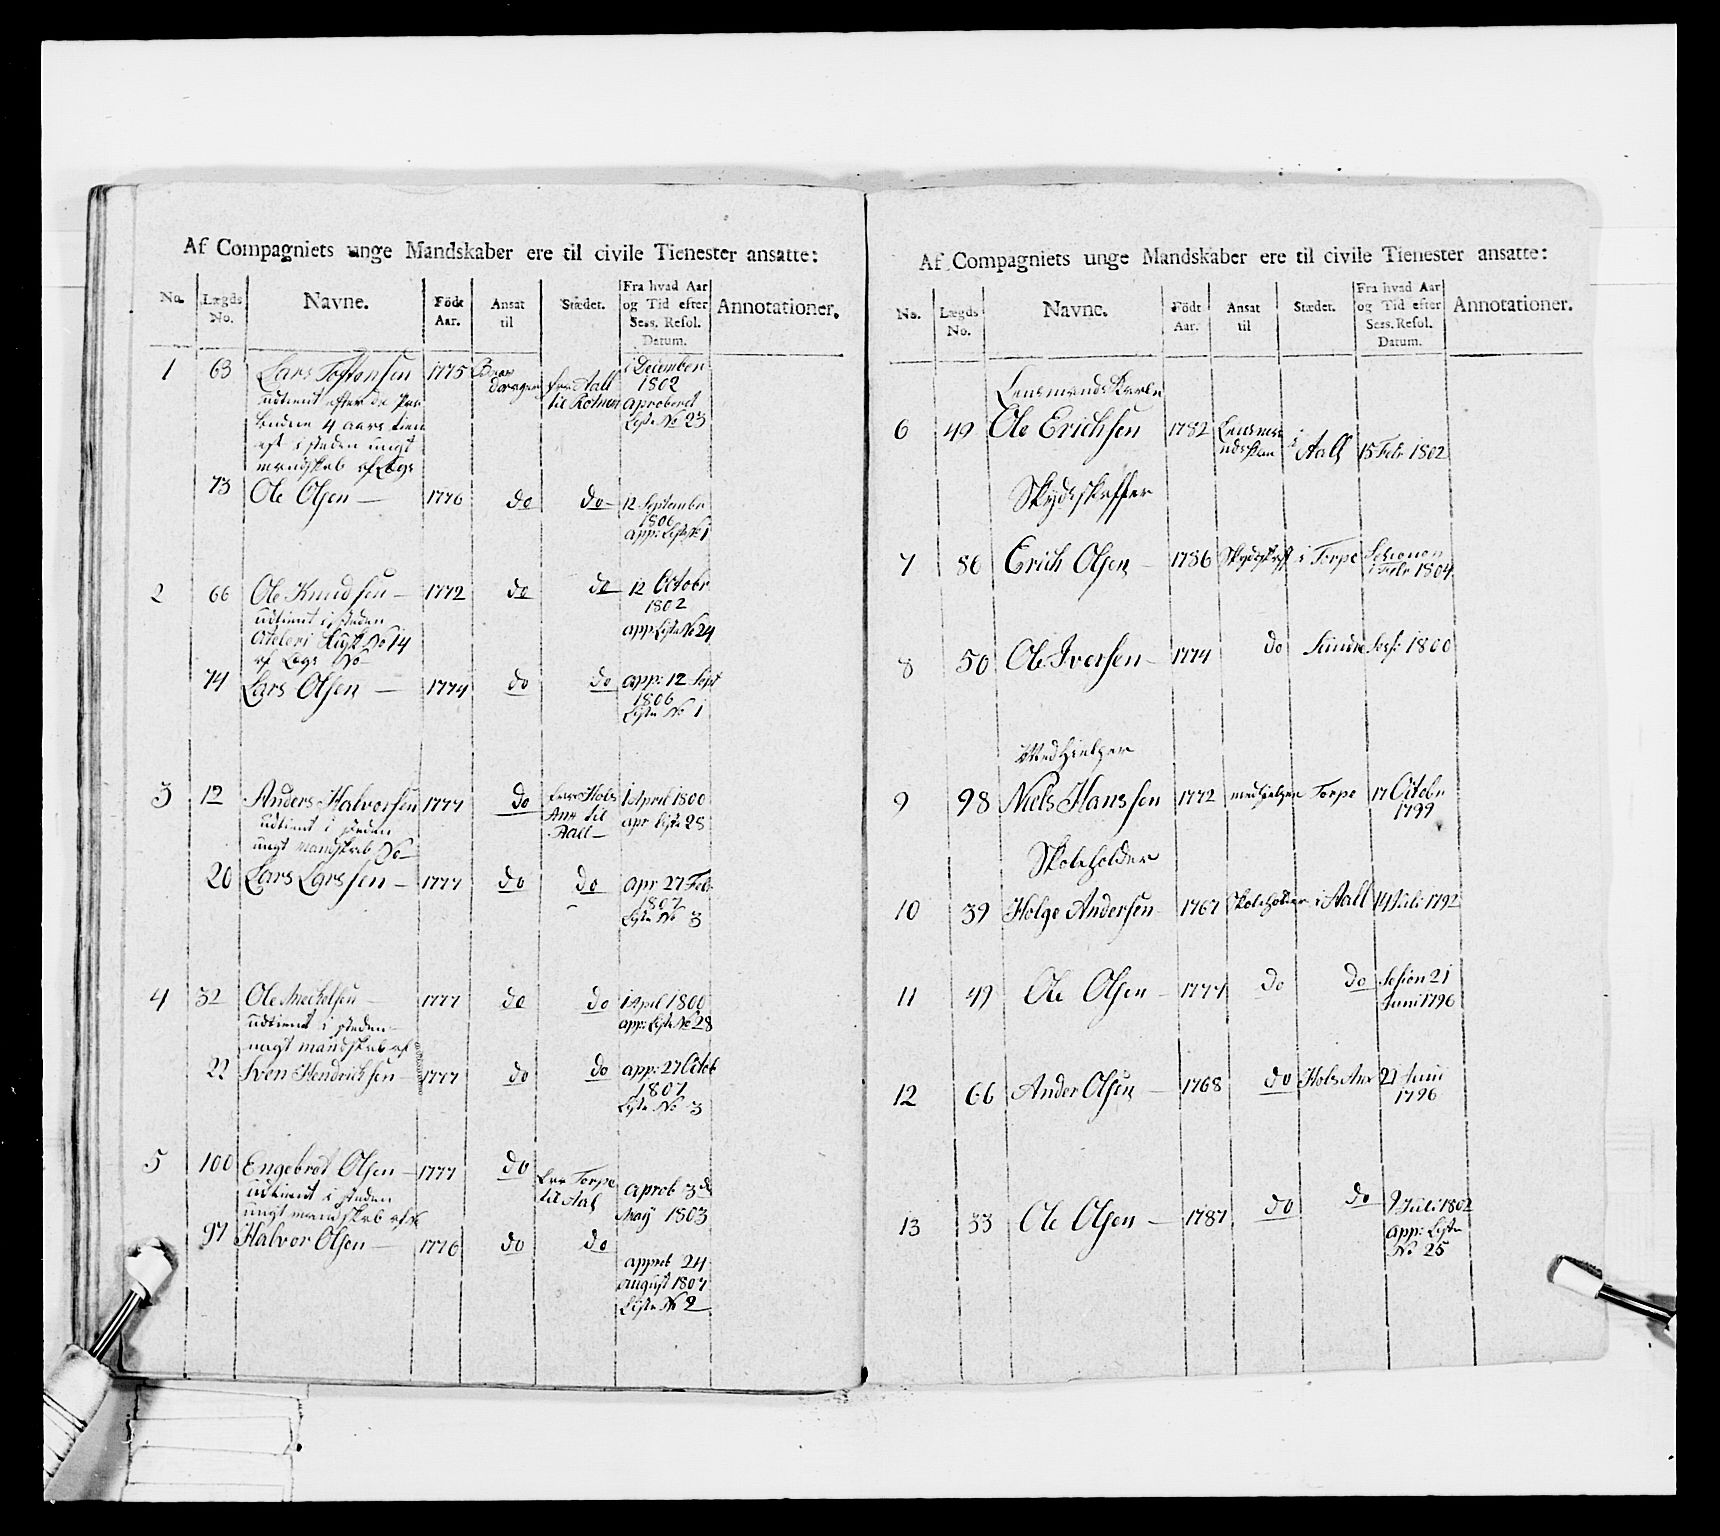 Af Compagniets unge Mandskaber ere til civile Tienester ansatte:
No. Lægds No. Navne. Födt Aar. Ansat til Stædet. Fra hvad Aar og Tid efter Sess. Resol. Datum. Annotationer.
1 63 Lars Tostensen 1775 fra Aall til i December 1802
udtient efter de
4 aars tien aproberet Liste No 23
est i steden ungt
mandskab af Legs
73 Ole Olsen — 1776 do do 12 September 1806 app: Liste No 1
2 66 Ole Knudsen — 1772 do do 12 Octobr 1802
udtient i steden app: Liste No 24
No 14
af Legs No
74 Lars Olsen — 1774 do do app: 12 Sept 1806 Liste No 1
3 12 Anders Halvorsen 1777 do fra Hols Anx til Aall — 1 April 1800
udtient i steden apr Liste 28
ungt mandskab No
20 Lars Larssen — 1777 do do apr 27 Feb 1807 Liste No 3
4 32 Ole 1777 do do 1 April 1800
udtient i steden app: Liste No 28
ungt mandskab af
22 Sven Hendrichsen — 1777 do do app: 27 Octob 1807 Liste No 3
5 100 Engebret Olsen — 1777 do fra Torpe til Aal aprob 3de May 1803
udtient i steden
ungt mandskab af
97 Halvor Olsen — 1776 do do approb 24 August 1807 Liste No 2
Af Compagniets unge Mandskaber ere til civile Tienester ansatte:
No. Lægds No. Navne. Födt Aar. Ansat til Stædet. Fra hvad Aar og Tid efter Sess. Resol. Datum. Annotationer.
Lensmands Karle
6 49 Ole Erichsen 1782 i Aall 15 Febr 1802
Skydsskaffer
7 86 Erich Olsen — 1786 Skydsskaff i Torpe Sesionen Febr 1804
8 50 Ole Iversen — 1774 do Sess: 1800
Medhielper
9 98 Niels Hanssen 1772 medhielper Torpe 17 Octobr 1799
Skoleholder
10 39 Helge Andersen 1767 Skoleholder i Aall 14 Juli 1792
11 49 Ole Olsen — 1777 do do Sesion 21 Juni 1796
12 66 Ander Olsen — 1768 do Hols Anx 21 Juni 1796
13 33 Ole Olsen — 1787 do do 9 Juli 1802 app: Liste No 25